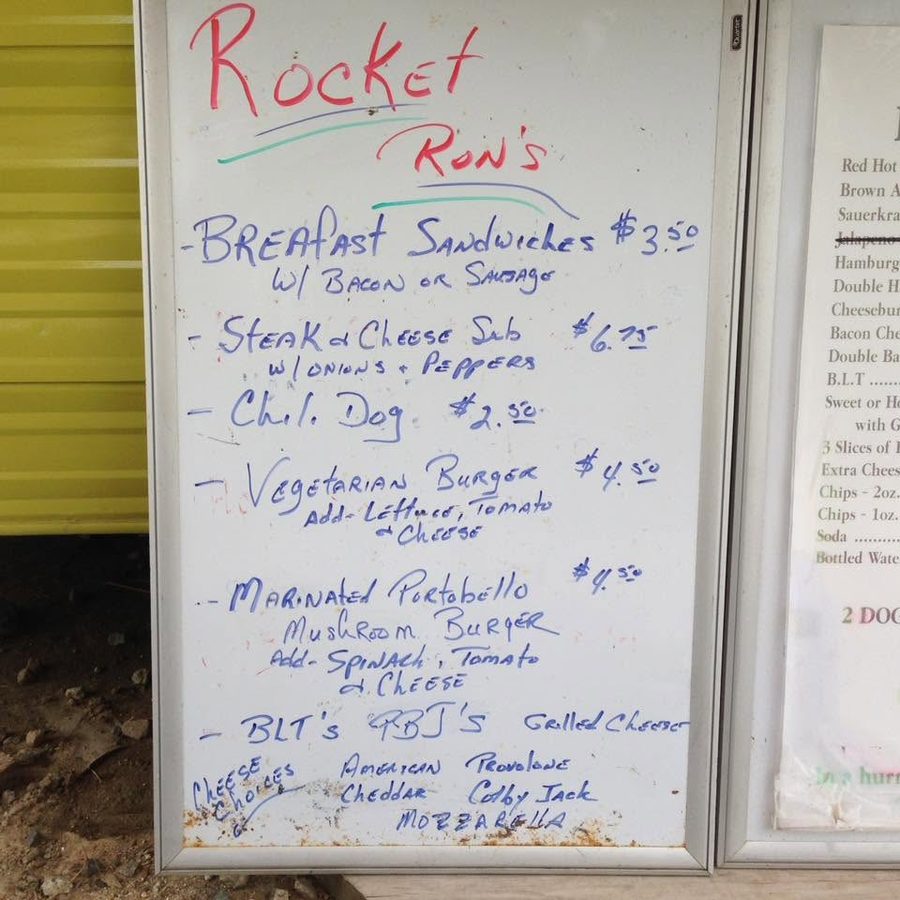 Rocket
Ron's
- Breafast Sandwiches $3.50
w/ Bacon or Sausage
- Steak & Cheese Sub $6.75
w/ onions + Peppers
- Chili Dog $2.50
- Vegetarian Burger $4.50
Add- Lettuce, Tomato
& Cheese
- Marinated Portobello $4.50
Mushroom Burger
Add- Spinach, Tomato
& Cheese
- BLT's PBJ's Grilled Cheese
Cheese
Choices
American Provolone
Cheddar Colby Jack
Mozzarella
Quartet
Red Hot
Brown
Sauerkra
Jalapeno
Hamburg
Double H
Cheesebur
Bacon Che
Double Ba
B.L.T ......
Sweet or Ho
with G
3 Slices of
Extra Chees
Chips - 2oz.
Chips - 1oz.
Soda ..........
Bottled Wate
2 DOG
In a hurr